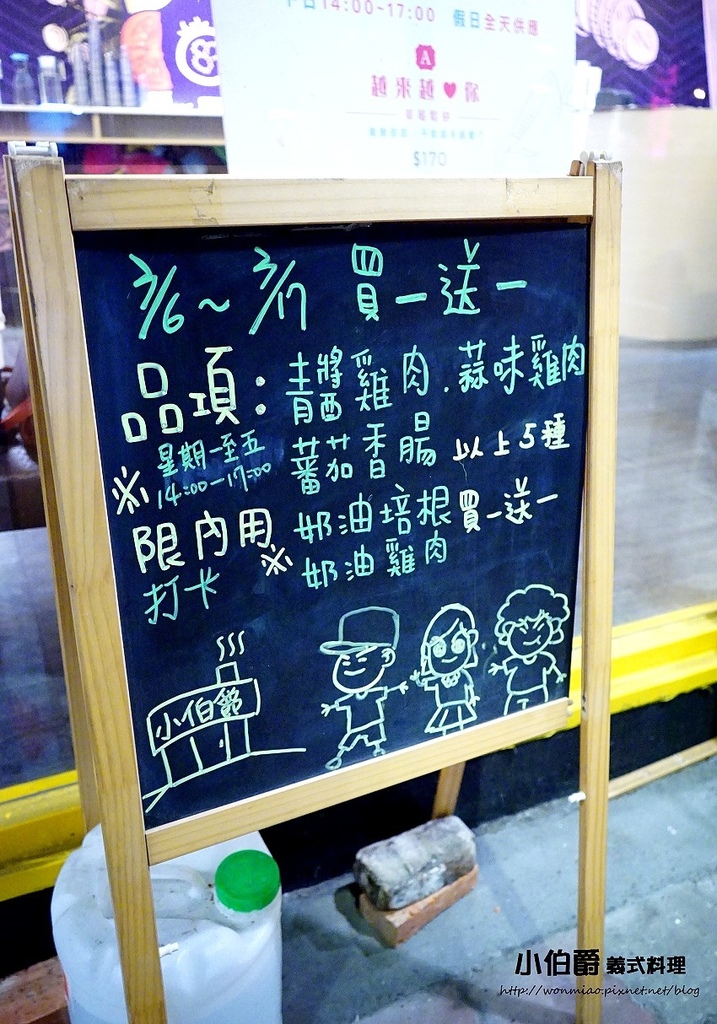 平日14:00~17:00 假日全天供應
A
越來越♥你
$170
3/6~3/17 買一送一
品項：青醬雞肉.蒜味雞肉
※星期一至五 蕃茄香腸 以上5種
14:00-17:00
限內用 奶油培根 買一送一
打卡 ※ 奶油雞肉
小伯爵
小伯爵 義式料理
http://wonmiao.pixnet.net/blog